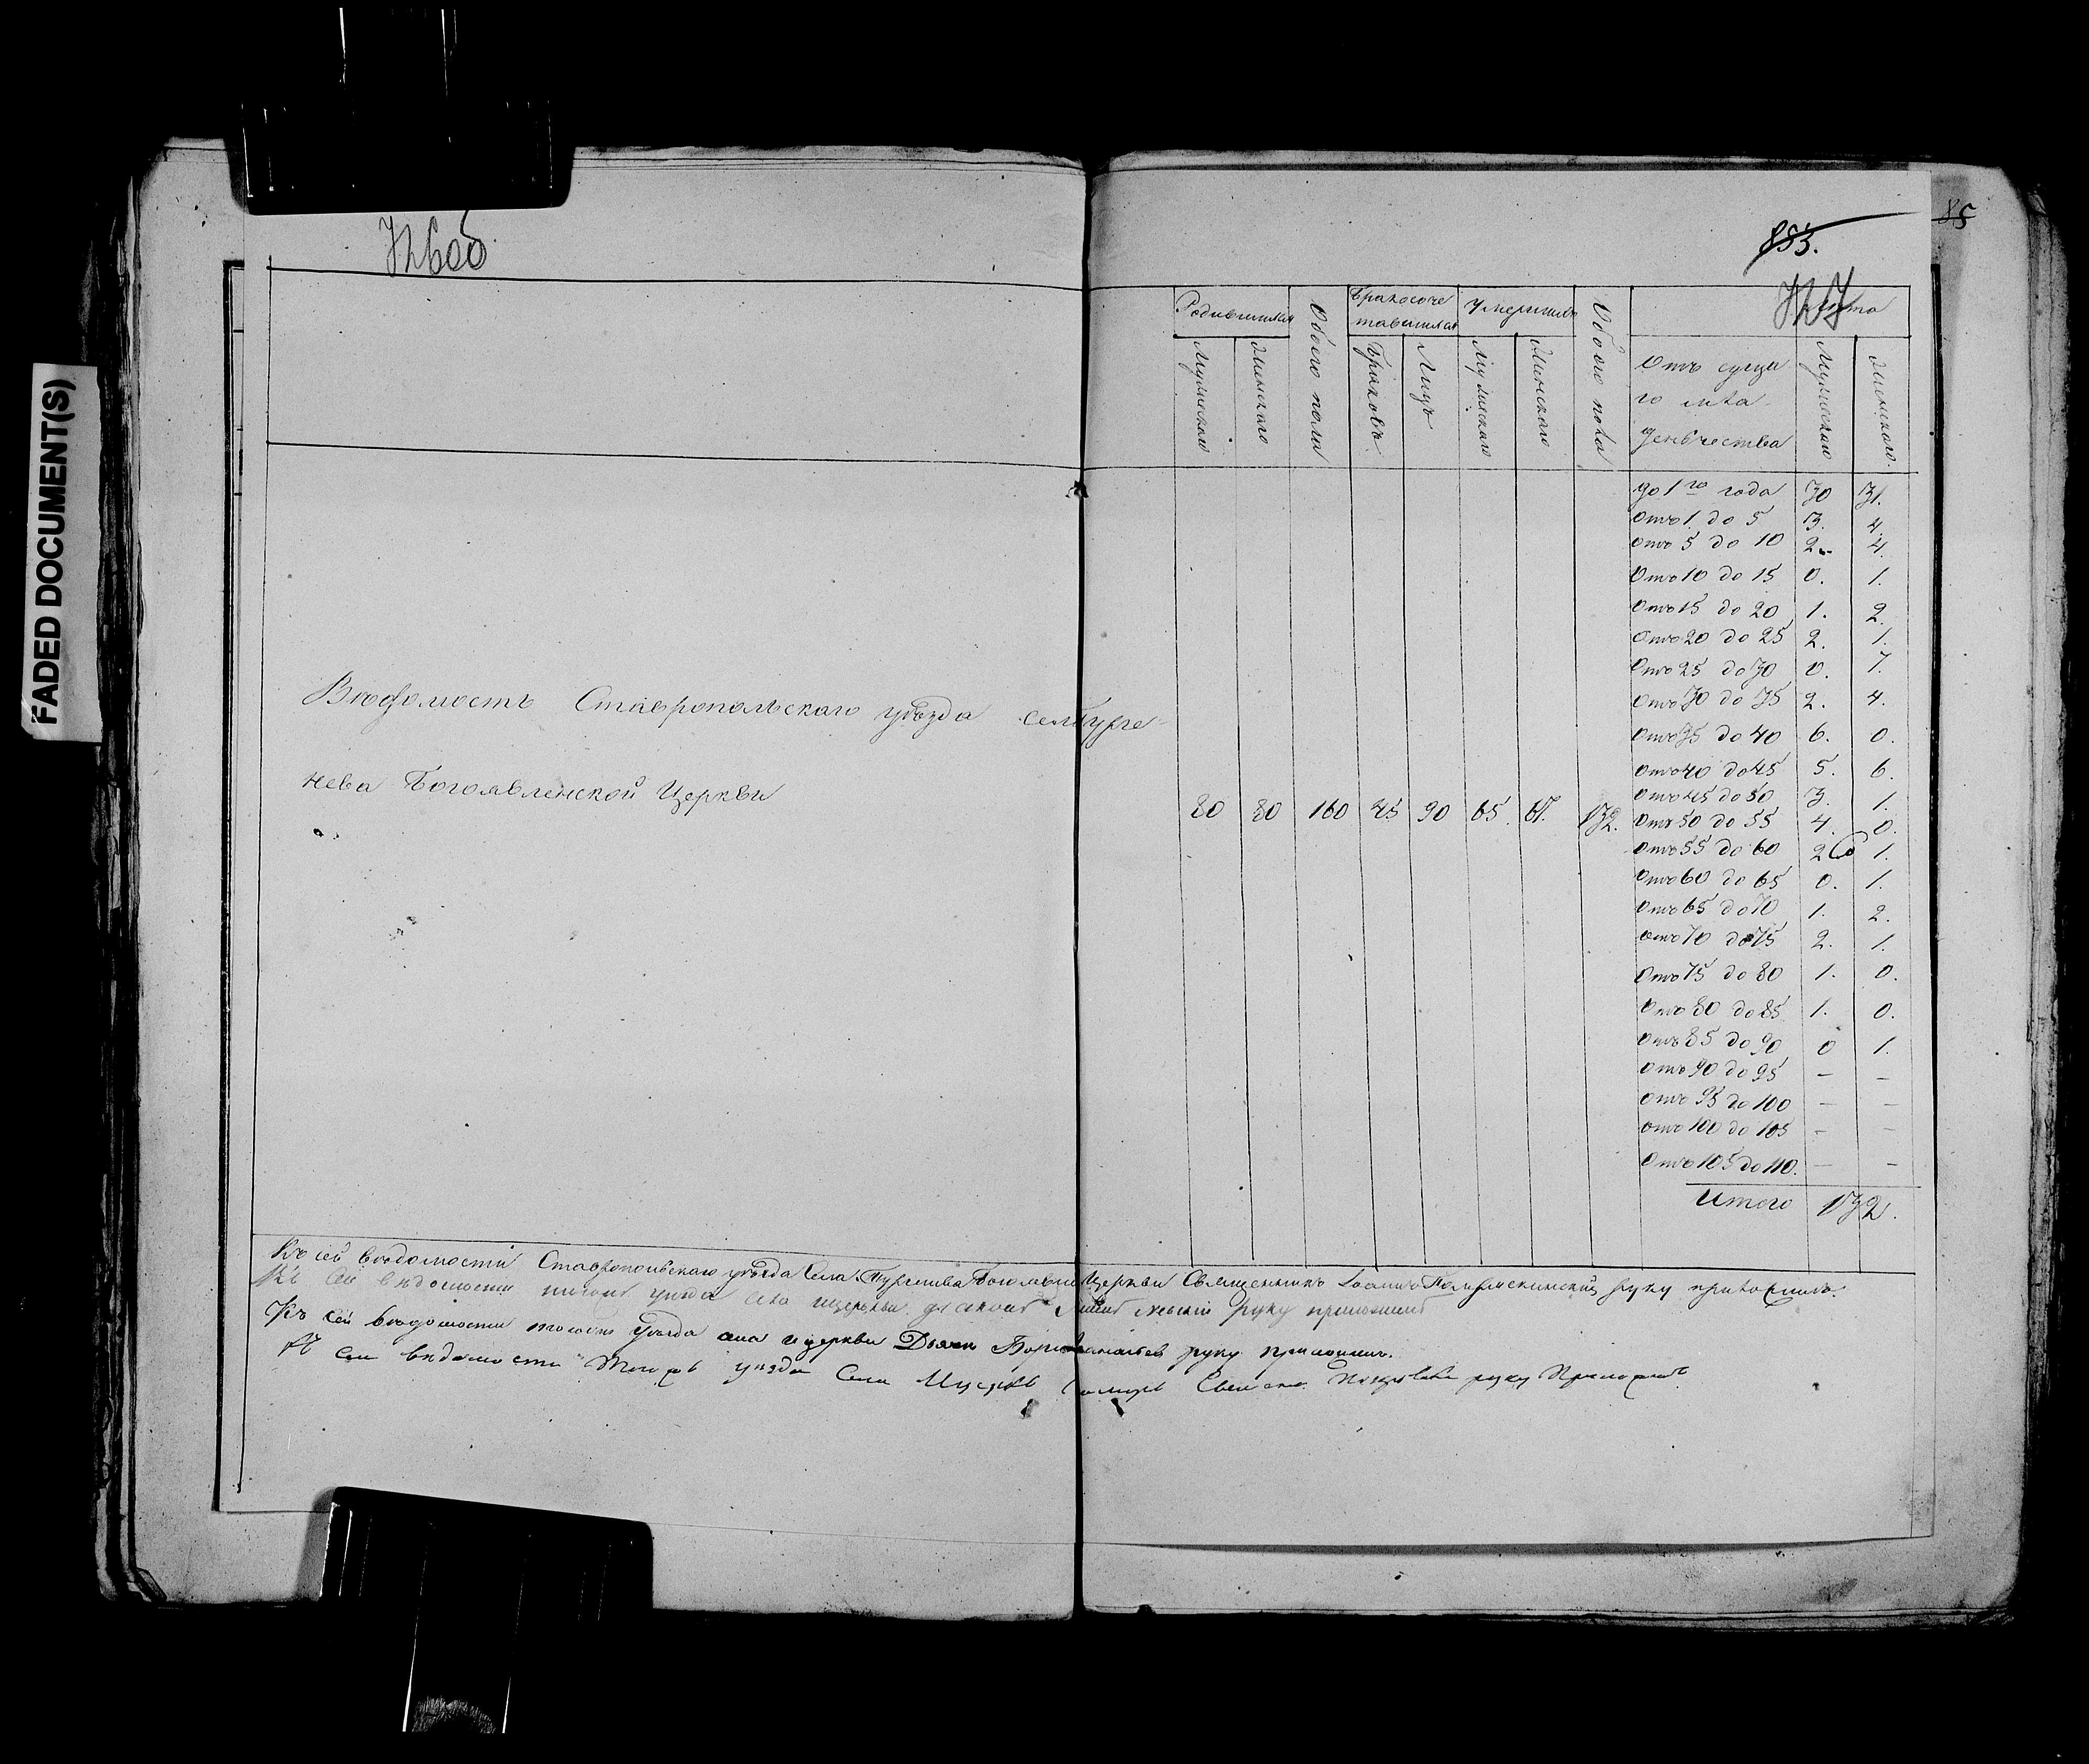 FADED DOCUMENT(S)
326об
85
853.
327
Родившихся
Обоего пола
Бракосоче
тавшихся
Умершихъ
Обоего пола
Лета
Мужескаго
Женскаго
Браковъ
Лицъ
Мужескаго
Женскаго
Отъ суща
го мла
денчества
Мужескаго
Женскаго.
до 1го года 30 31.
Отъ 1. до 5 3. 4.
Отъ 5 до 10 2. 4.
Отъ 10 до 15 0. 1.
Отъ 15 до 20 1. 2.
Отъ 20 до 25 2. 1.
Отъ 25 до 30 0. 7.
Отъ 30 до 35 2. 4.
Отъ 35 до 40 6. 0.
Отъ 40 до 45 5. 6.
Отъ 45 до 50 3. 1.
Отъ 50 до 55 4. 0.
Отъ 55 до 60 2 1.
Отъ 60 до 65 0. 1.
Отъ 65 до 70 1. 2.
Отъ 70 до 75 2. 1.
Отъ 75 до 80 1. 0.
Отъ 80 до 85 1. 0.
Отъ 85 до 90 0 1.
Отъ 90 до 95 — —
Отъ 95 до 100 — —
Отъ 100 до 105 — —
Отъ 105 до 110. — —
Итого 132.
Вѣдомость Ставропольскаго уѣзда села Турге-
нева Богоявленской Церкви
80 80 160 45 90 65. 67. 132.
Къ сей вѣдомости Ставропольскаго уѣзда Села Тургенева Богоявлен Церкви Священникъ Іоаннъ руку приложилъ.
Къ сей вѣдомости тогожъ уѣзда села и церкви діаконъ руку приложилъ
Къ сей вѣдомости тогожъ уѣзда села и церкви Дьячекъ руку приложилъ.
Къ сей вѣдомости Тогожъ уѣзда Села И церкви Пономарь руку Приложилъ